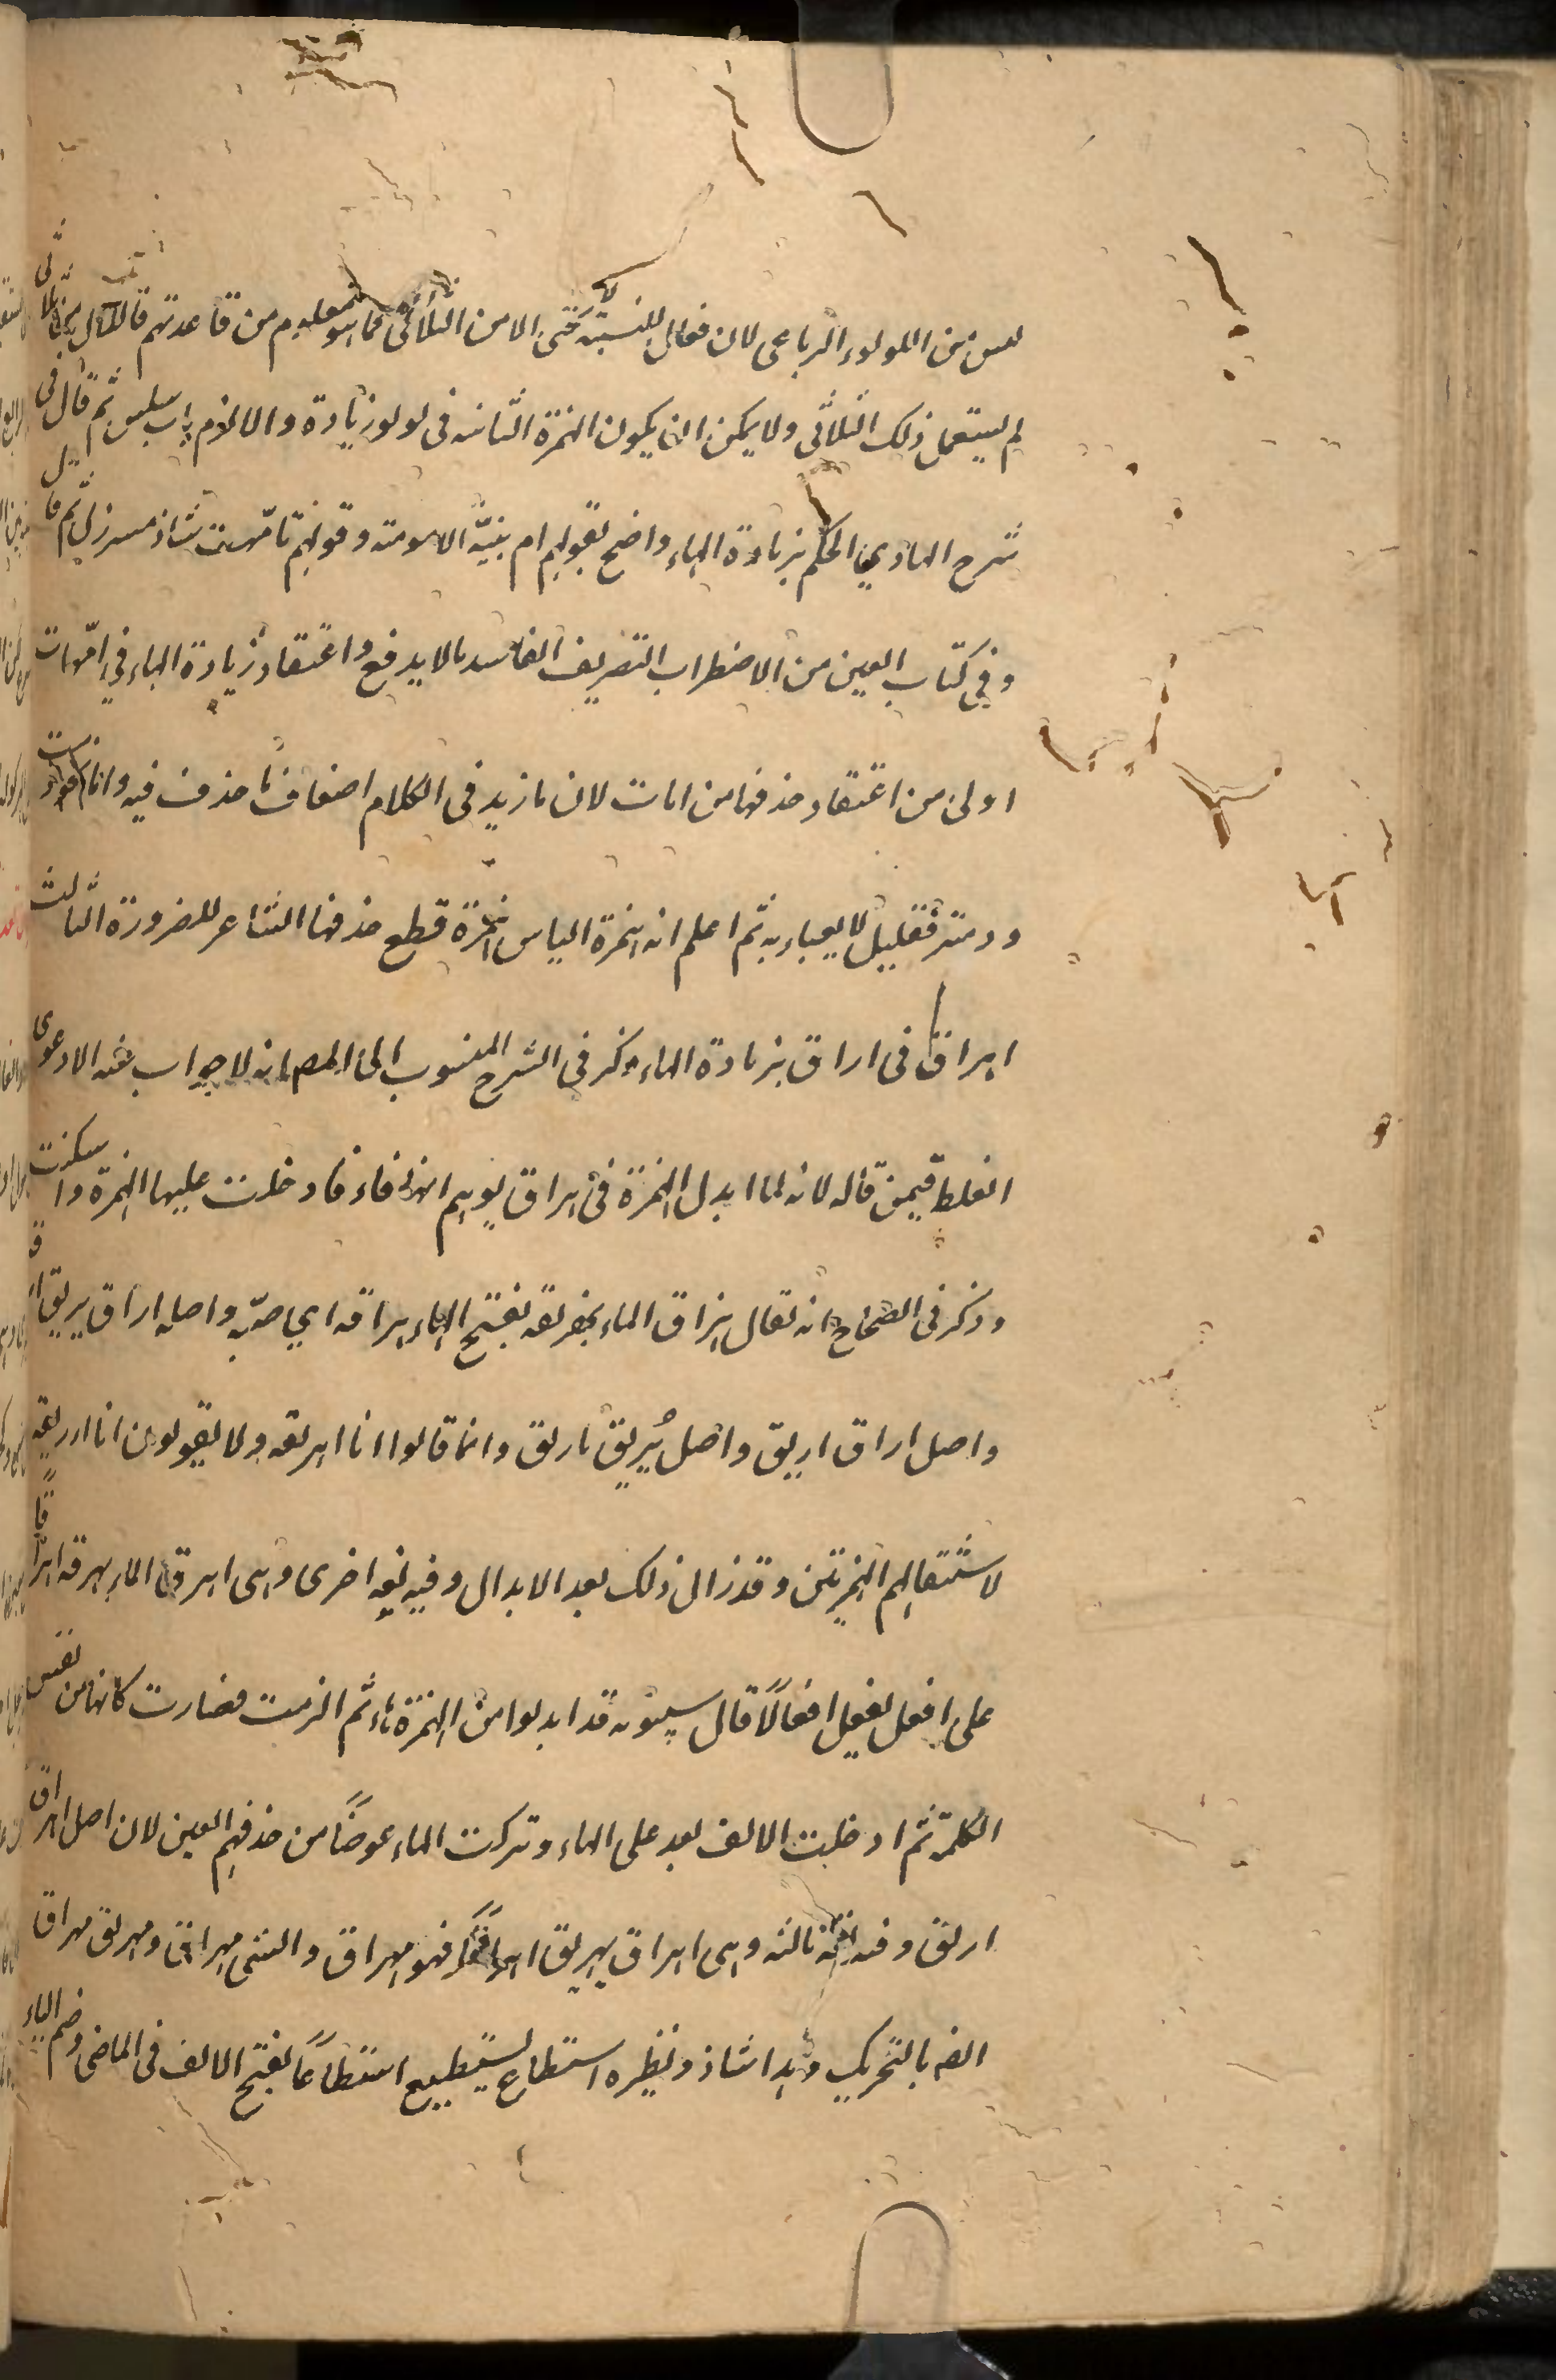 ليس من اللولوء الرباعى لان فعالا للنسبة لا يجئ الا من الثلاثى فما هو معلوم من قاعدتهم قال من الثلاثى
لم يستعمل ذلك الثلاثى ولا يمكن ان يكون الهمزة الثانيه فى لولوء زيادة والا لازم باب سلس ثم قال فى
شرح الهادي الحكم بزيادة الهاء واضح لقولهم ام بينة الامومة وقولهم تامهت شاذ مسترذل ثم قال
وفي كتاب العين من الاضطراب التصريف الفاسد مالا يدفع واعتقاد زيادة الهاء في امهات
اولى من اعتقاد حذفها من امات لان ما زيد فى الكلام اضعاف ما حذف فيه واما
ودمثر فقليل لا يعباء به ثم اعلم ان همزة الياس همزة قطع حذفها الشاعر للضرورة الثالث
اهراق فى اراق بزيادة الهاء وذكر في الشرح المنسوب الى المص انه لا جواب عنه الا دعوى
الغلط فيمن قاله لانه لما ابدل الهمزة فى هراق يوهم انها فاء فادخلت عليها الهمزة واسكنت
وذكر فى الصحاح انه يقال هراق الماء يهريقه بفتح الهاء هراقه اي صبه واصله اراق يريق اراقة
واصل اراق اريق واصل يُريق يأريق وانما قالوا انا اهريقه ولا يقولون انا ااريقه
لاستثقالهم الهمزتين وقد زال ذلك بعد الابدال وفيه لغه اخرى وهى اهرق الماء يهرقه اهراقًا
على افعل يفعل افعالًا قال سيبويه قد ابدلوا من الهمزة هاء ثم الزمت فصارت كانها من نفس
الكلمة ثم ادخلت الالف بعد على الهاء وتركت الهاء عوضًا من حذفهم العين لان اصل اهراق
اريق وفيه لغة ثالثه وهى اهراق يهريق اهراقًا فهو مهراق والشئ مهراق ومهريق مهراق
الضه بالتحريك وهذا شاذ ونظيره اسطاع يسطيع اسطاعًا بفتح الالف فى الماضى وضم الياء